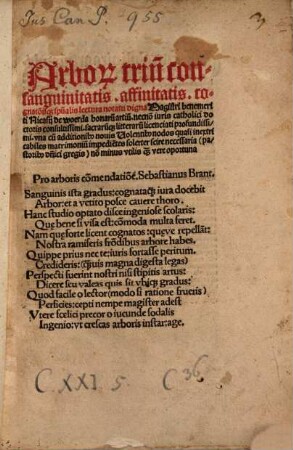 Jus Can. P. 955
Arborꝝ triũ con-
sanguinitatis. affinitatis. co-
gnationisqȝ spũalis lectura notatu digna Magistri benemeri
ti Nicasij de Woerda bonarũ artiũ. necnõ iuris catholici do
ctoris consultissimi. sacrarũqȝ litterarũ licenciati profundissi-
mi. vna cũ additionibᵒ nouis Volentibᵒ nodos quasi inextri
cabiles matrimoniũ impediẽtes soluere scire necessaria (pa-
storibᵒ dñici gregis) nõ minus vtilis qȝ vere oportuna
Pro arboris cõmendatiõe. Sebastianus Brant.
Sanguinis ista gradus: cognataqȝ iura docebit
Arbor: et a vetito polsce cauere thoro.
Hanc studio optato disce ingeniose scolaris:
Que bene si visa est: cõmoda multa feret.
Nam que forte licent cognatos: queve repellãt:
Nostra ramiseris frõdibus arbore habes.
Quippe prius nec te: iuris fortasse peritum.
Credideris: (qȝuis magna digesta legas)
Perspecti fuerint nostri nisi stipitis artus:
Dicere seu valeas quis sit vbiqȝ gradus:
Quod facile o lector (modo si ratione frueris)
Perficies: cepti nempe magister adest
Vtere fœlici precor o iucunde sodalis
Ingenio: vt crescas arboris instar: age.
C XXI 5. C 36